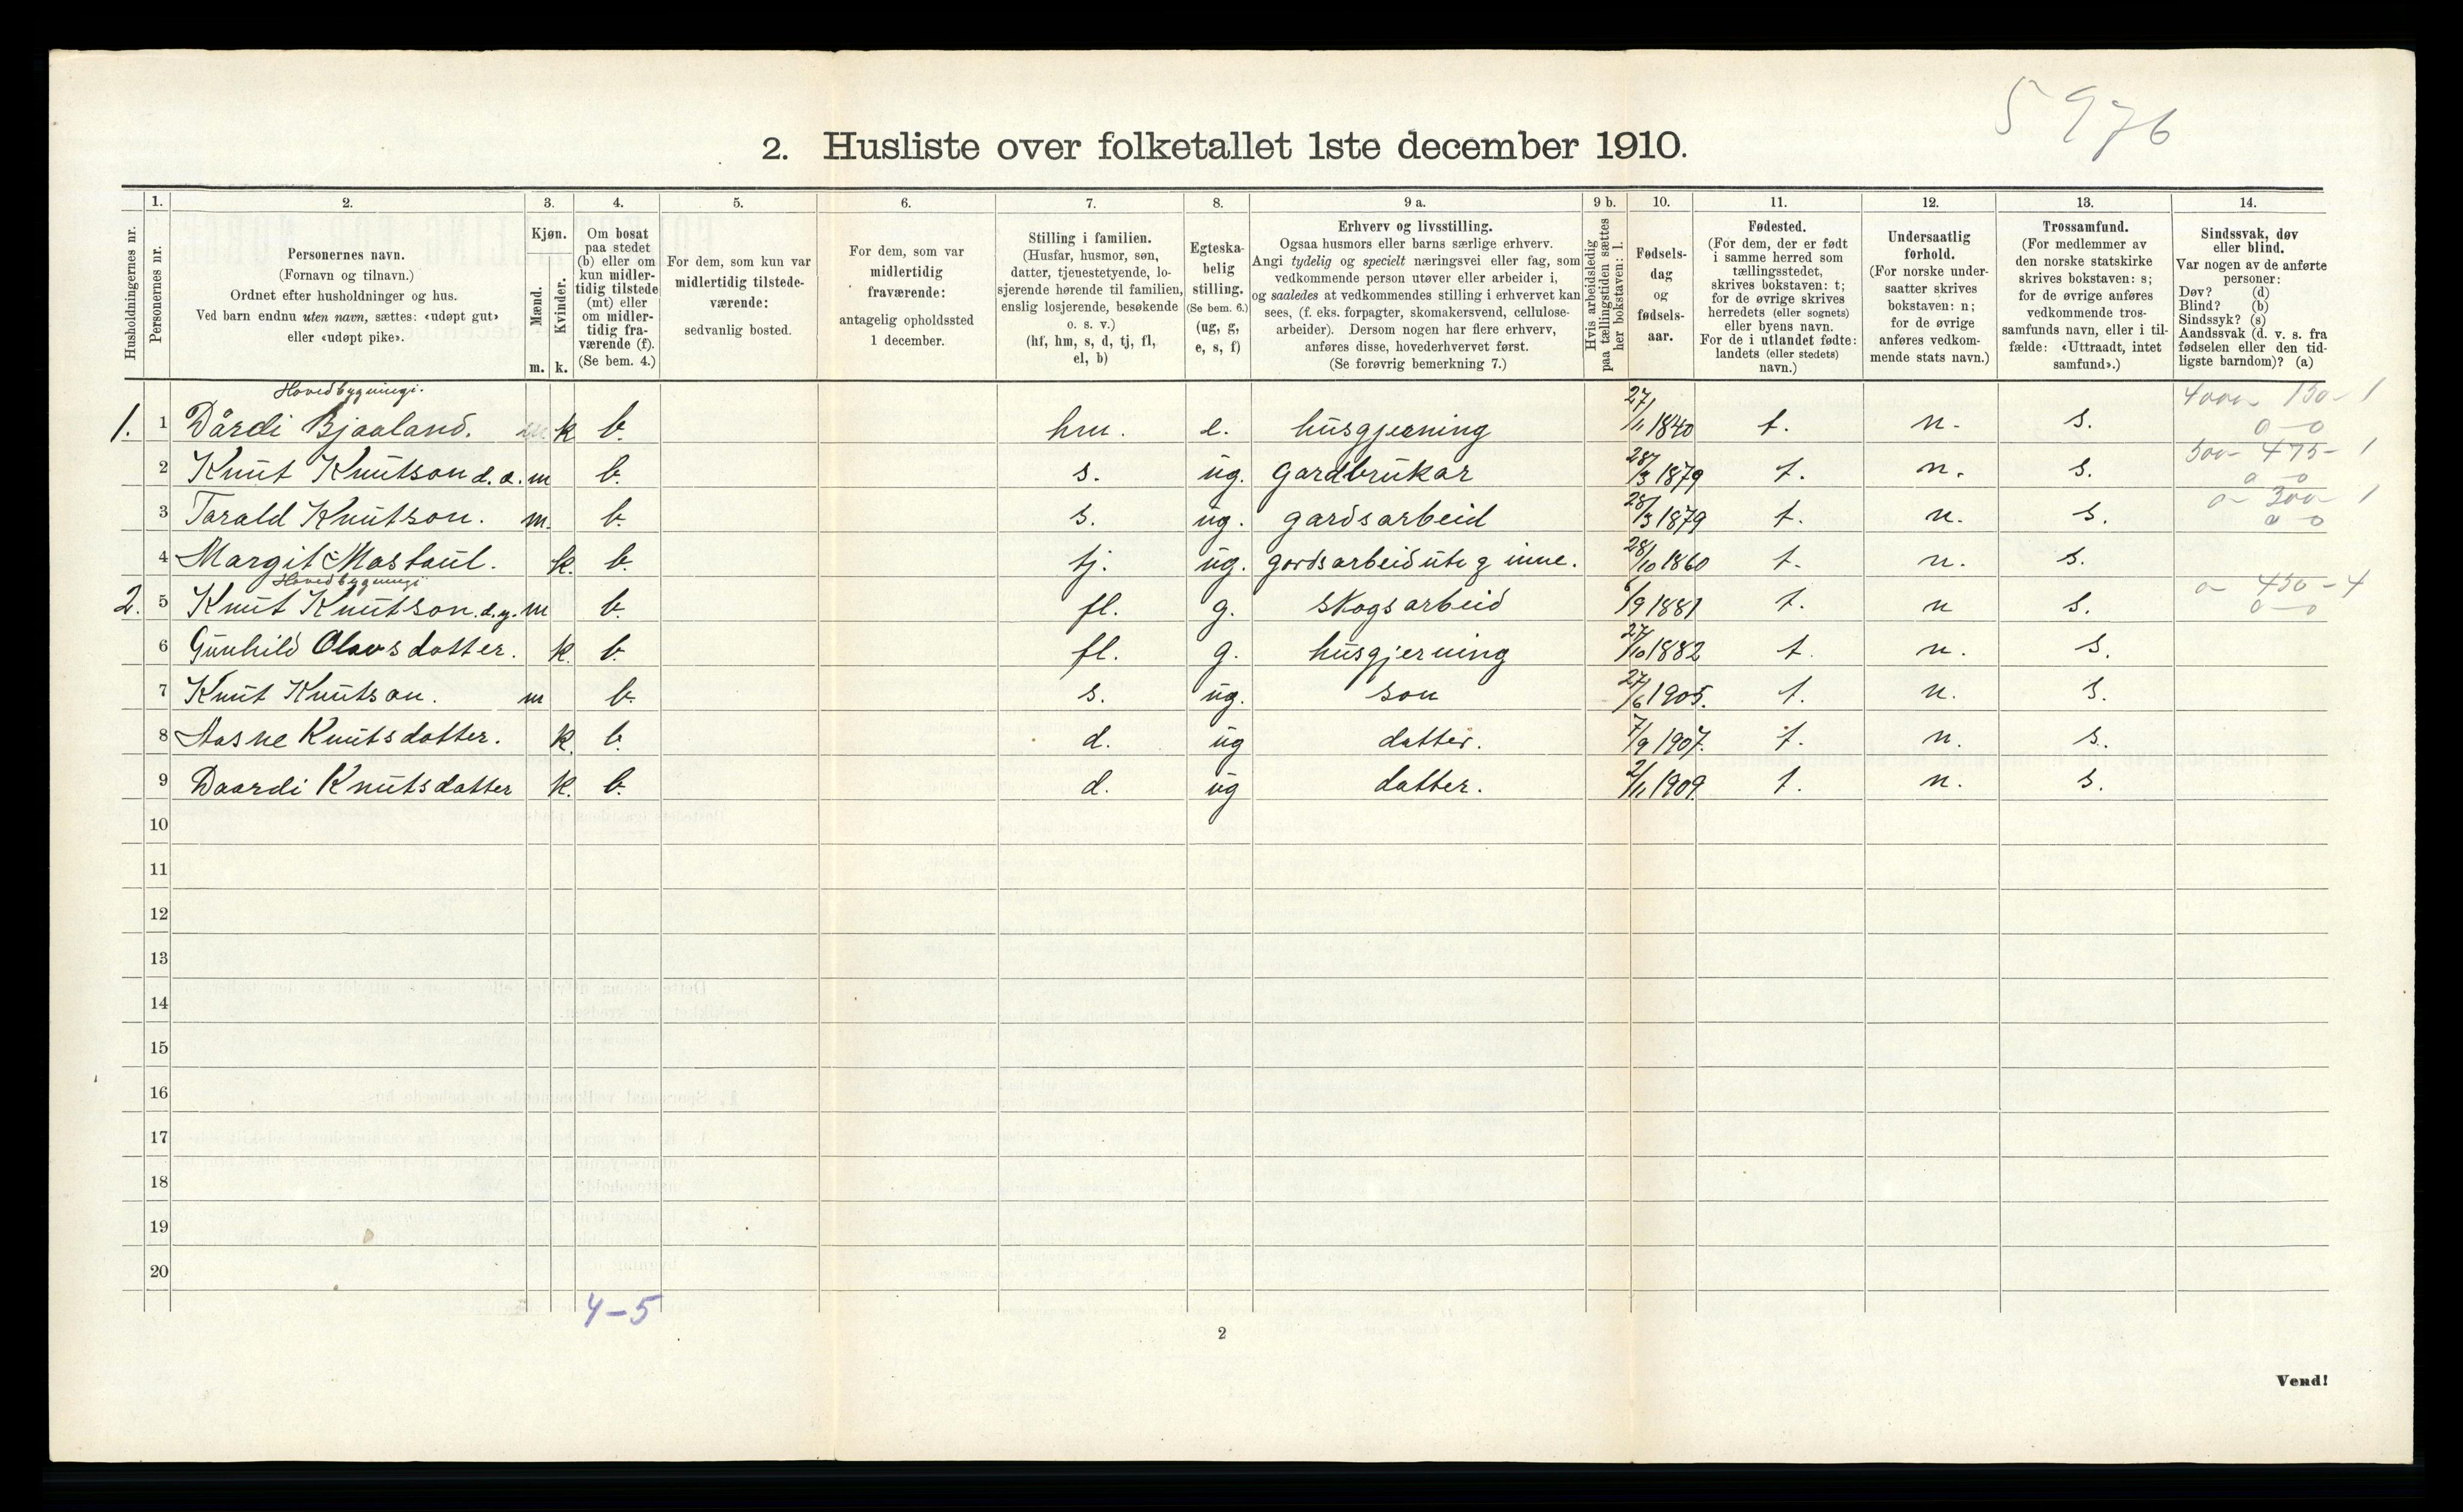 5976
2. Husliste over folketallet 1ste december 1910.
1. 2. 3. 4. 5. 6. 7. 8. 9 a. 9 b. 10. 11. 12. 13. 14.
Husholdningernes nr.
Personernes nr.
Personernes navn.
(Fornavn og tilnavn.)
Ordnet efter husholdninger og hus.
Ved barn endnu uten navn, sættes: «udøpt gut»
eller «udøpt pike».
Kjøn.
Mænd.
Kvinder.
m. k.
Om bosat
paa stedet
(b) eller om
kun midler-
tidig tilstede
(mt) eller
om midler-
tidig fra-
værende (f).
(Se bem. 4.)
For dem, som kun var
midlertidig tilstede-
værende:
sedvanlig bosted.
For dem, som var
midlertidig
fraværende:
antagelig opholdssted
1 december.
Stilling i familien.
(Husfar, husmor, søn,
datter, tjenestetyende, lo-
sjerende hørende til familien,
enslig losjerende, besøkende
o. s. v.)
(hf, hm, s, d, tj, fl,
el, b)
Egteska-
belig
stilling.
(Se bem. 6.)
(ug, g,
e, s, f)
Erhverv og livsstilling.
Ogsaa husmors eller barns særlige erhverv.
Angi tydelig og specielt næringsvei eller fag, som
vedkommende person utøver eller arbeider i,
og saaledes at vedkommendes stilling i erhvervet kan
sees, (f. eks. forpagter, skomakersvend, cellulose-
arbeider). Dersom nogen har flere erhverv,
anføres disse, hovederhvervet først.
(Se forøvrig bemerkning 7.)
Hvis arbeidsledig
paa tællingstiden sættes
her bokstaven: l.
Fødsels-
dag
og
fødsels-
aar.
Fødested.
(For dem, der er født
i samme herred som
tællingsstedet,
skrives bokstaven: t;
for de øvrige skrives
herredets (eller sognets)
eller byens navn.
For de i utlandet fødte:
landets (eller stedets)
navn.)
Undersaatlig
forhold.
(For norske under-
saatter skrives
bokstaven: n;
for de øvrige
anføres vedkom-
mende stats navn.)
Trossamfund.
(For medlemmer av
den norske statskirke
skrives bokstaven: s;
for de øvrige anføres
vedkommende tros-
samfunds navn, eller i til-
fælde: «Uttraadt, intet
samfund».)
Sindssvak, døv
eller blind.
Var nogen av de anførte
personer:
Døv? (d)
Blind? (b)
Sindssyk? (s)
Aandssvak (d. v. s. fra
fødselen eller den tid-
ligste barndom)? (a)
Hovedbygningi.
4000 - 150 - 1
1. 1 Dårdi Bjaaland. k b. hm. e. husgjerning 27/11 1840 t. n. s. 0 - 0
500 - 475 - 1
2 Knut Knutson d. e. m b. s. ug. gardbrukar 28/3 1879 t. n. s. 0 - 0
0 - 300 - 1
3 Tarald Knutson. m. b. s. ug. gardsarbeid 28/3 1879 t. n. s. 0 - 0
4 Margit Mostaul. k. b. tj. ug. gardsarbeid ute g inne. 28/10 1860 t. n. s.
Hovedbygningi
0 - 450 - 4
2. 5 Knut Knutson. d. y. m b. fl. g. skogsarbeid 6/9 1881 t. n s. 0 - 0
6 Gunhild Olavsdatter. k. b. fl. g. husgjerning 27/10 1882 t. n. s.
7 Knut Knutson. m b. s. ug. son 27/6 1905. t. n. s.
8 Aasne Knutsdatter. k. b. d. ug datter. 7/9 1907. t. n. s.
9 Daardi Knutsdatter k. b. d. ug datter. 2/11 1909. t. n. s.
10
11
12
13
14
15
16
17
18
19
20
4-5
2
Vend!